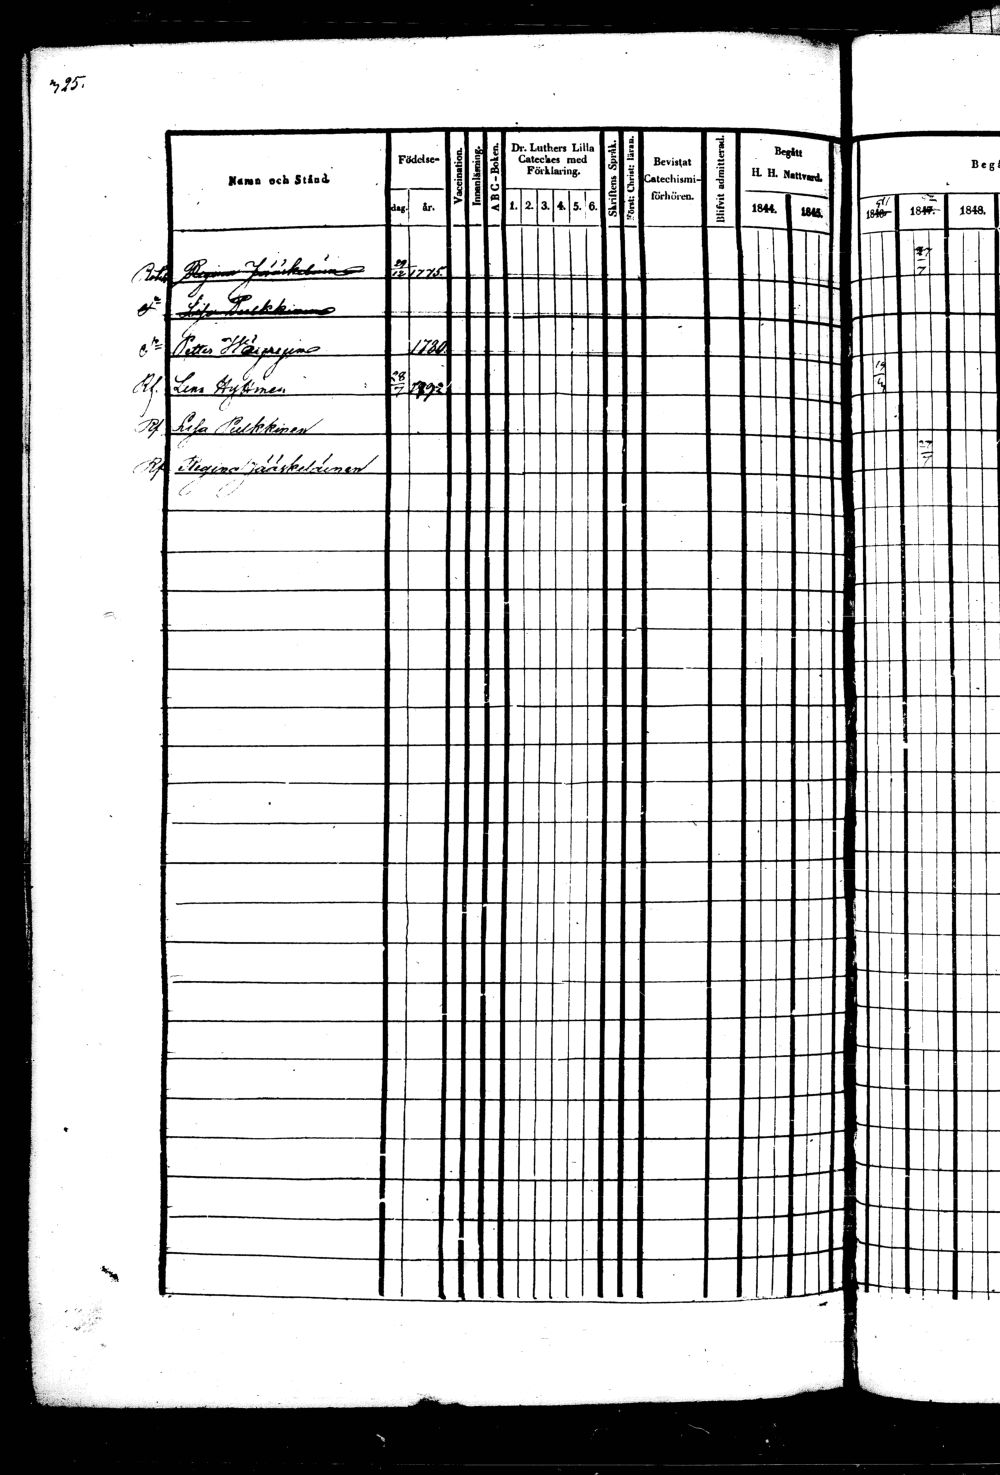 325.
Namn och Stånd.
Födelse-
dag. år.
Vaccination.
Innanläsning.
ABC-Boken.
Dr. Luthers Lilla
Cateches med
Förklaring.
1. 2. 3. 4. 5. 6.
Skriftens Språk.
Först: Christ: läran.
Bevistat
Catechismi-
förhören.
Blifvit admitterad.
Begått
H. H. Nattvard.
1844. 1845.
Begå
1846. 1847. 1848.
Regina Jääskeläinen 29/12 1775. 27/7
Lisa Pulkkinen
Petter 1730
Rf. Lena Hyttinen 28/7 1792 19/4
Rf Lisa Pulkkinen
Rf Regina Jääskeläinen 27/7